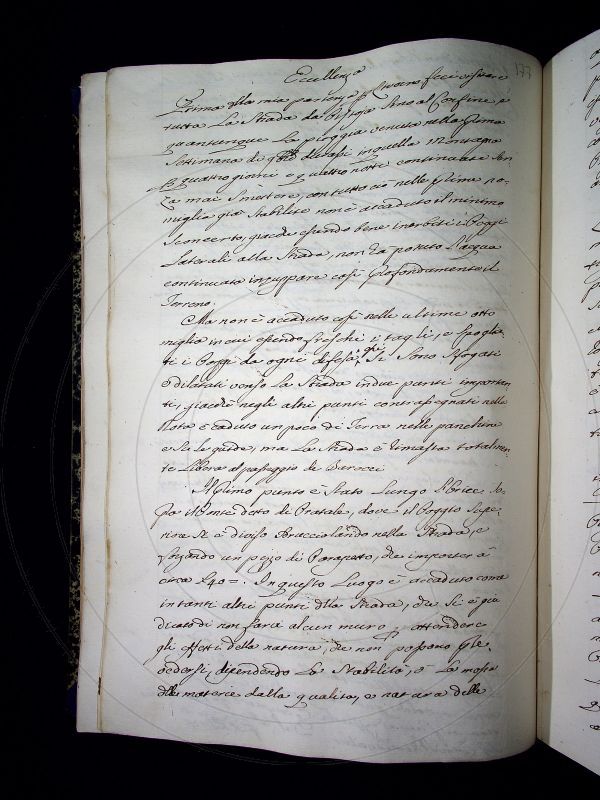 177
Eccellenza
Prima della mia partenza p Livorno feci visitare
tutta La Strada da Pistoja sino al Confine, e
quantunque La pioggia venuta nella prima
Settimana di qto durasse in quella montagna
quattro giorni e quattro notti continuate Sen-
za mai Smettere, con tutto ciò nelle prime
miglia già Stabilite non è accaduto il minimo
Sconcerto, giacchè essendo bene inerbiti i Poggi
Laterali alla Strada, non ha potuto L'acqua
continuata inzuppare così profondamente il
Terreno.
Ma non è accaduto così nelle ultime otto
miglia in cui essendo freschi i tagli, e spoglia-
ti i Poggi da ogni difesa, qti Si Sono Sfogati
e dilatati verso La Strada in due punti importan-
ti, giacchè negli altri punti contrassegnati nella
Nota è caduto un poco di Terra nelle panchine
e Su le guide, ma La Strada è rimasta totalmen-
te Libera al passeggio de Barocci
Il primo punto è Stato Lungo So-
pra il Ponte detto di Pratale, dove il Poggio Supe-
riore Si è diviso Sbrucciolando nella Strada, e
un pezzo di Parapetto, che importerà
circa £40=. In questo Luogo è accaduto come
in tanti altri punti della Strada, che Si è giu-
dicato di non farci alcun muro, p attendere
gli effetti della natura, che non possono pre-
vedersi, dipendendo La Stabilità, o La mossa
delle materie dalla qualità, e natura delle